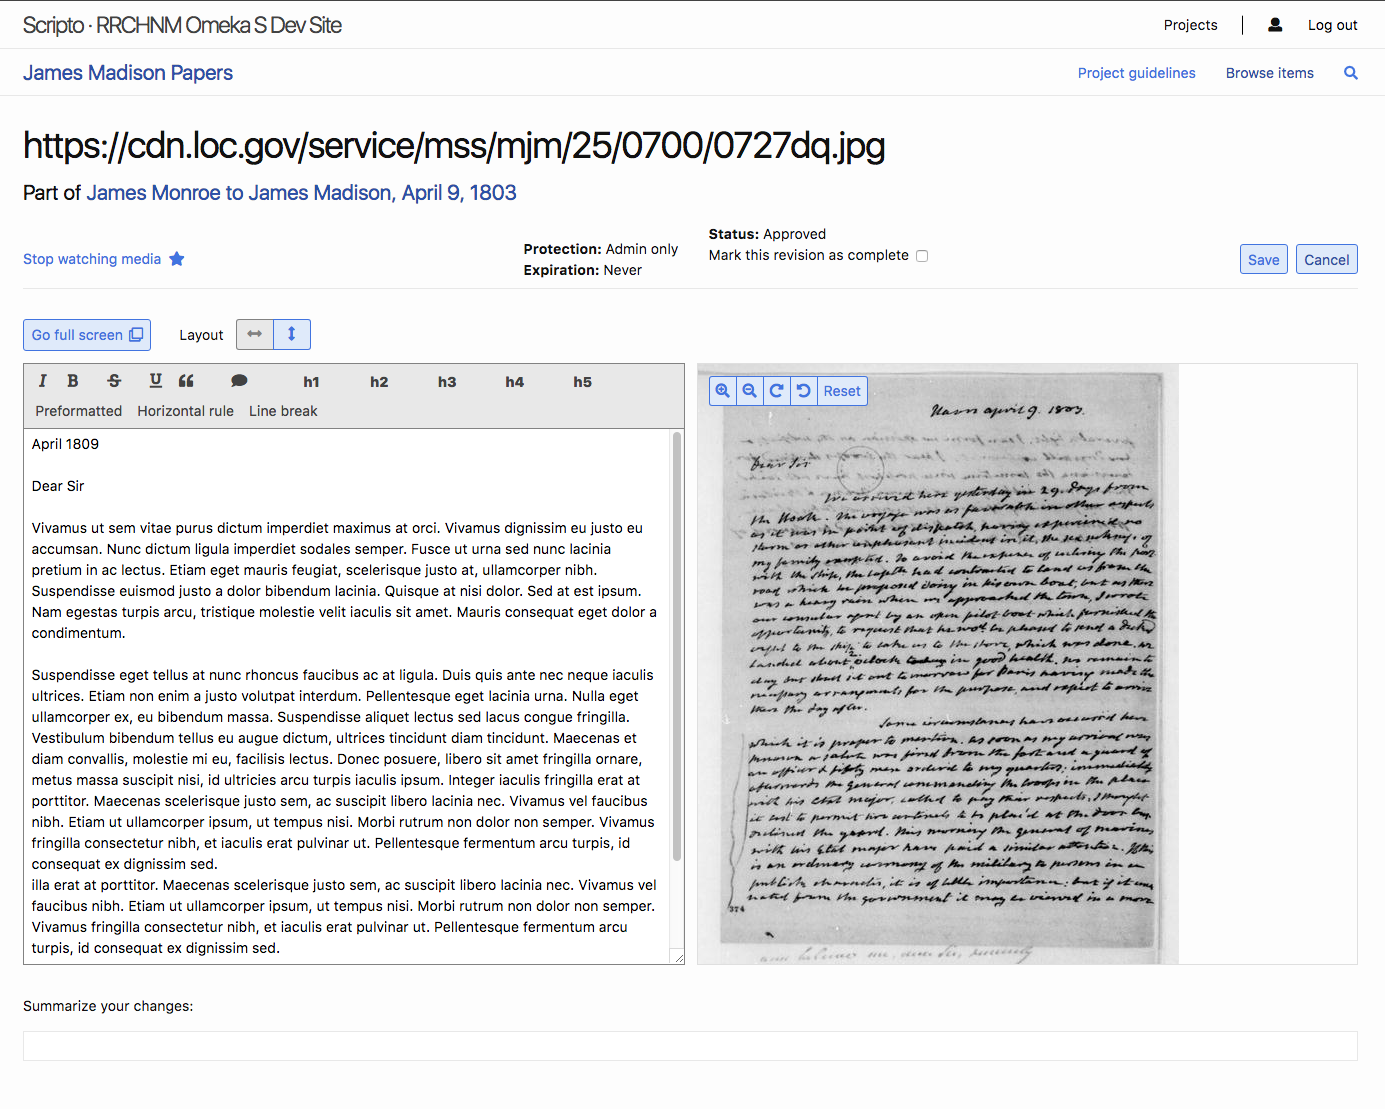 Scripto · RRCHNM Omeka S Dev Site
Projects
Log out
James Madison Papers
Project guidelines
Browse items
https://cdn.loc.gov/service/mss/mjm/25/0700/0727dq.jpg
Part of James Monroe to James Madison, April 9, 1803
Stop watching media
Protection: Admin only
Expiration: Never
Status: Approved
Mark this revision as complete
Save
Cancel
Go full screen
Layout
I B S U h1 h2 h3 h4 h5
Preformatted Horizontal rule Line break
April 1809
Dear Sir
Vivamus ut sem vitae purus dictum imperdiet maximus at orci. Vivamus dignissim eu justo eu
accumsan. Nunc dictum ligula imperdiet sodales semper. Fusce ut urna sed nunc lacinia
pretium in ac lectus. Etiam eget mauris feugiat, scelerisque justo at, ullamcorper nibh.
Suspendisse euismod justo a dolor bibendum lacinia. Quisque at nisi dolor. Sed at est ipsum.
Nam egestas turpis arcu, tristique molestie velit iaculis sit amet. Mauris consequat eget dolor a
condimentum.
Suspendisse eget tellus at nunc rhoncus faucibus ac at ligula. Duis quis ante nec neque iaculis
ultrices. Etiam non enim a justo volutpat interdum. Pellentesque eget lacinia urna. Nulla eget
ullamcorper ex, eu bibendum massa. Suspendisse aliquet lectus sed lacus congue fringilla.
Vestibulum bibendum tellus eu augue dictum, ultrices tincidunt diam tincidunt. Maecenas et
diam convallis, molestie mi eu, facilisis lectus. Donec posuere, libero sit amet fringilla ornare,
metus massa suscipit nisi, id ultricies arcu turpis iaculis ipsum. Integer iaculis fringilla erat at
porttitor. Maecenas scelerisque justo sem, ac suscipit libero lacinia nec. Vivamus vel faucibus
nibh. Etiam ut ullamcorper ipsum, ut tempus nisi. Morbi rutrum non dolor non semper. Vivamus
fringilla consectetur nibh, et iaculis erat pulvinar ut. Pellentesque fermentum arcu turpis, id
consequat ex dignissim sed.
illa erat at porttitor. Maecenas scelerisque justo sem, ac suscipit libero lacinia nec. Vivamus vel
faucibus nibh. Etiam ut ullamcorper ipsum, ut tempus nisi. Morbi rutrum non dolor non semper.
Vivamus fringilla consectetur nibh, et iaculis erat pulvinar ut. Pellentesque fermentum arcu
turpis, id consequat ex dignissim sed.
Reset
april 9. 1803.
Dear Sir
We arrived here yesterday in 29. days from
the Hook. The voyage was as favorable in other aspects
as it was in point of dispatch, having experienced no
storm or other unpleasant incident in it, the sea sickness of
my family excepted. To avoid the expence of entering the port
with the ship, the captn. had contracted to land us from the
road which he proposed doing in his own boat, but as there
was a heavy rain when we approached the town, I wrote
our consular agent by an open pilot boat which furnished the
opportunity, to request that he would be pleased to send a decked
vessel to the ship to take us to the shore, which was done. we
landed about oclock in good health. we remain to
day but shall set out tomorrow for Paris having made the
necessary arrangements for the purpose, and expect to arrive
there the day after.
Some circumstances have occurred here
which it is proper to mention. as soon as my arrival was
known a salute was fired from the fort and a guard of
an officer & fifty men ordered to my quarters, immediately
afterwards the general commanding the troops in the place
with his Etat major, called to pay their respects. I thought
it best to permit two centinels to be plac'd at the door but
declined the guard. This morning the general of marines
with his Etat major have paid a similar attention. If this
is an ordinary ceremony of the military to persons in a
publick character, it is of little importance; but if it ema
nated from the government it may be viewed in a more
374
Summarize your changes: